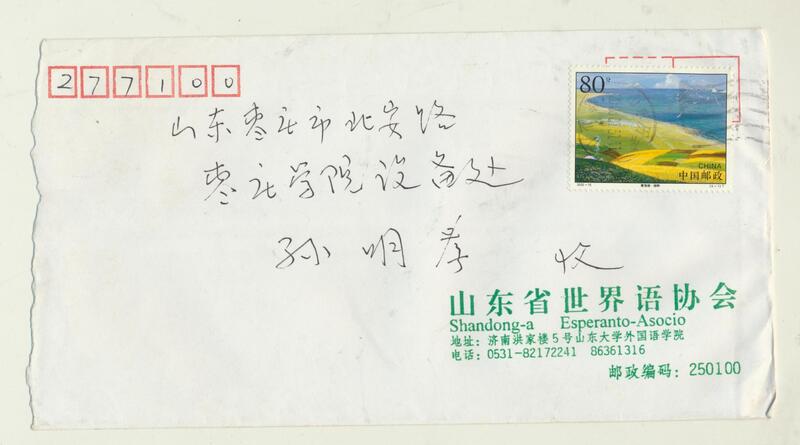 277100
山东枣庄市北安路
枣庄学院设备处
孙明孝 收
80分
CHINA
中国邮政
山东省世界语协会
Shandong-a Esperanto-Asocio
地址：济南洪家楼5号山东大学外国语学院
电话：0531-82172241 86361316
邮政编码：250100